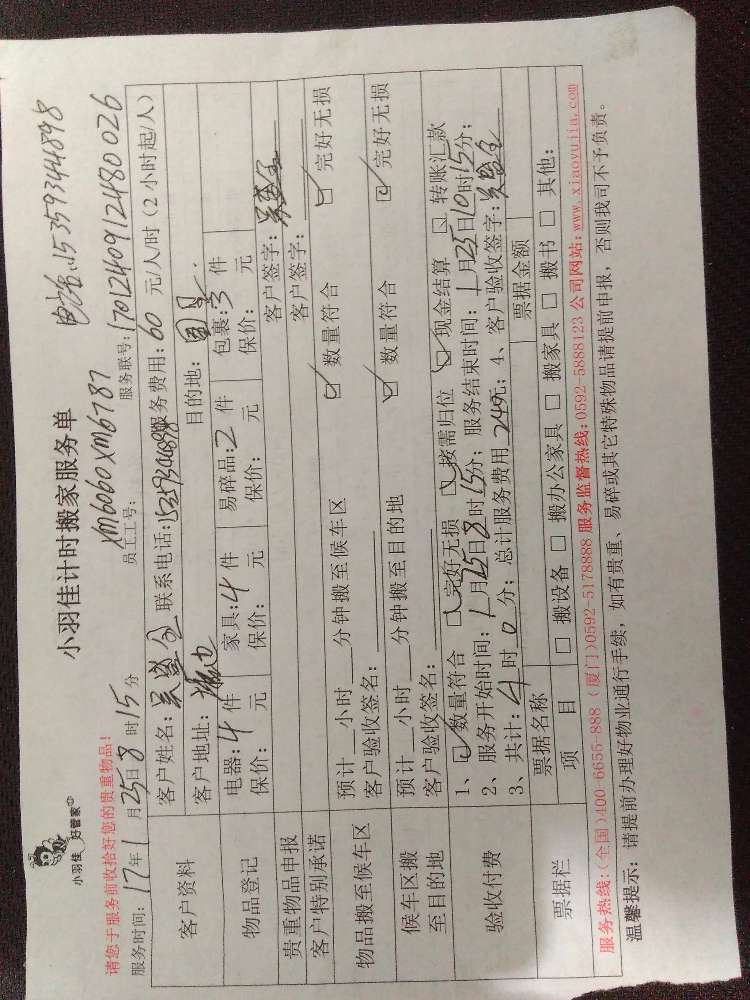 小羽佳 好管家
小羽佳计时搬家服务单
电话:15359344898
请您于服务前收拾好您的贵重物品!
员工工号: XM6060 XM6787
服务时间: 17年1月25日8时15分
服务联号: 1701240912480026
客户资料
客户姓名: 联系电话: 服务费用: 60 元/人/时(2小时起/人)
客户地址: 目的地:
物品登记
电器: 4件 家具: 4件 易碎品: 2件 包裹: 3件
保价: 元 保价: 元 保价: 元 保价: 元
贵重物品申报 客户签字:
客户特别承诺 客户签字:
物品搬至候车区
预计 小时 分钟搬至候车区 ☑ 数量符合 ☑ 完好无损
客户验收签名:
候车区搬至目的地
预计 小时 分钟搬至目的地 ☑ 数量符合 ☑ 完好无损
客户验收签名:
验收付费
1、☑ 数量符合 ☑ 完好无损 ☑ 按需归位 ☑ 现金结算 □ 转账汇款
2、服务开始时间: 1月25日8时15分; 服务结束时间: 1月25日10时15分;
3、共计: 4时0分; 总计服务费用 249元; 4、客户验收签字:
票据栏
票据名称 票据金额
项目 □ 搬设备 □ 搬办公家具 □ 搬家具 □ 搬书 □ 其他:
服务热线:(全国)400-6655-888 (厦门)0592-5178888 服务监督热线: 0592-5888123 公司网站: www.xiaoyujia.com
温馨提示: 请提前办理好物业通行手续, 如有贵重、易碎或其它特殊物品请提前申报, 否则我司不予负责。